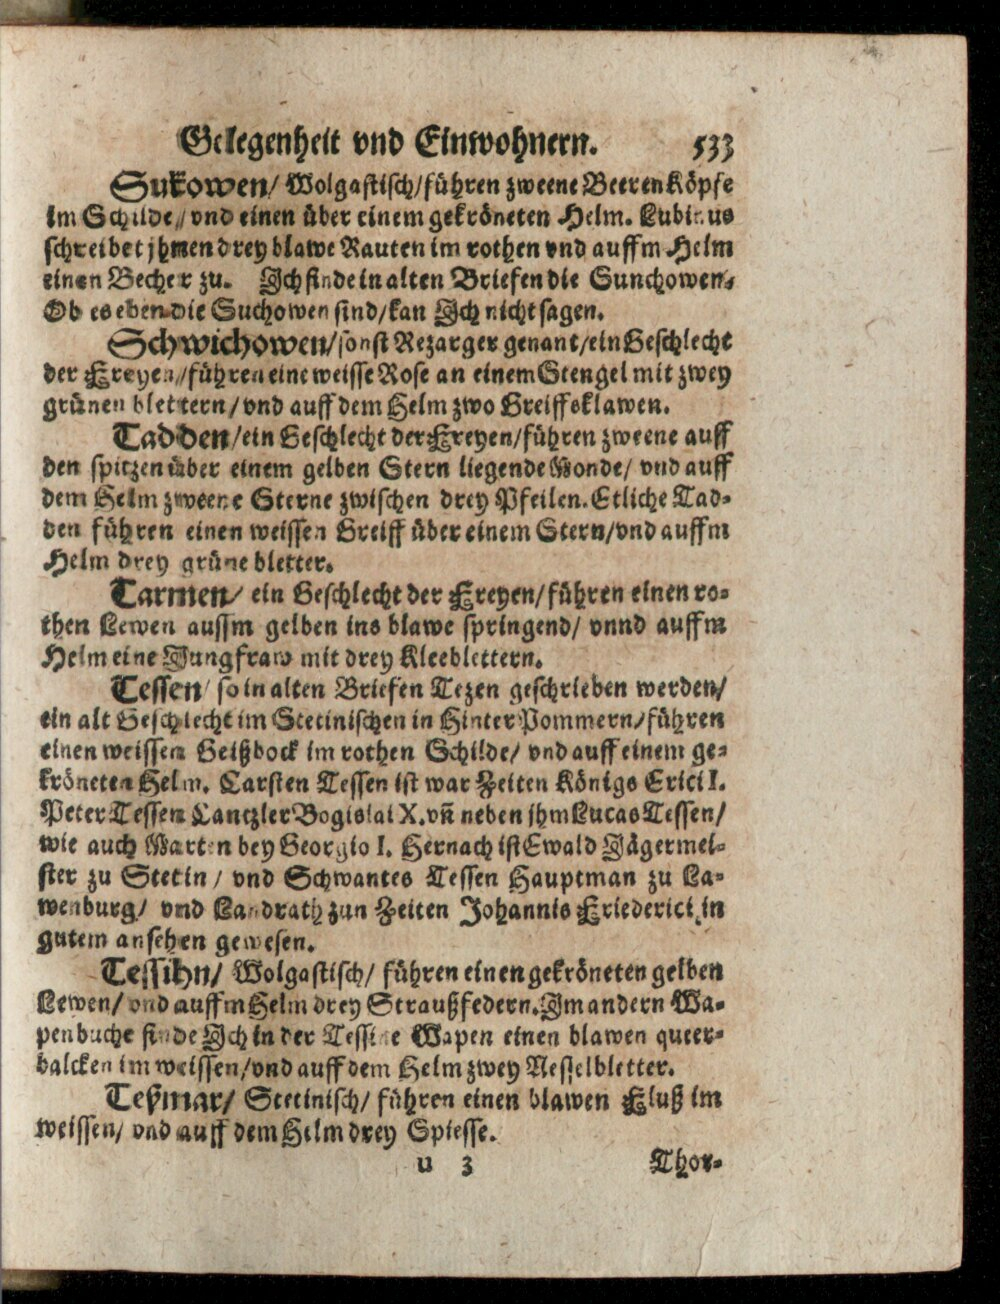 Gelegenheit vnd Einwohnern. 533
Sukowen/ Wolgastisch/führen zweene BeerenKöpfe
im Schilde/ vnd einen über einem gekröneten Helm. Lubinus
schreibet jhnen drey blawe Rauten im rothen vnd auffm Helm
einen Becher zu. Ich finde in alten Briefen die Sunchowen/
Ob es eben die Suchowen sind/kan Ich nicht sagen.
Schwichowen/sonst Rezarger genant/ein Geschlecht
der Freyen/führen eine weisse Rose an einem Stengel mit zwey
grünen blettern/vnd auff dem Helm zwo Greiffsklawen.
Tadden/ein Geschlecht der Freyen/führen zweene auff
den spitzen über einem gelben Stern liegende Monde/ vnd auff
dem Helm zweene Sterne zwischen drey Pfeilen. Etliche Tad-
den führen einen weissen Greiff über einem Stern/vnd auffm
Helm drey grüne bletter.
Tarmen/ ein Geschlecht der Freyen/führen einen ro-
then Lewen aussm gelben ins blawe springend/ vnnd auffm
Helm eine Jungfraw mit drey Kleeblettern.
Tessen/ so in alten Briefen Tezen geschrieben werden/
ein alt Geschlecht im Stetinischen in Hinter Pommern/führen
einen weissen Geißbock im rothen Schilde/ vnd auff einem ge-
kröneten Helm. Carsten Tessen ist war Zeiten Königs Erici I.
Peter Tessen Cantzler Bogislai X. vñ neben jhm Lucas Tessen/
wie auch Marten bey Georgio I. Hernach ist Ewald Jägermei-
ster zu Stetin/ vnd Schwantes Tessen Hauptman zu La-
wenburg/ vnd Landrath zun Zeiten Johannis Friederici in
gutem ansehen gewesen.
Tessihn/ Wolgastisch/ führen einen gekröneten gelben
Lewen/ vnd auffm Helm drey Straußfedern. Im andern Wa-
penbuche finde Ich in der Tessine Wapen einen blawen queer-
balcken im weissen/vnd auff dem Helm zwey Nesselbletter.
Teßmar/ Stetinisch/ führen einen blawen Fluß im
weissen/ vnd auff dem Helm drey Spiesse.
u 3 Thor-